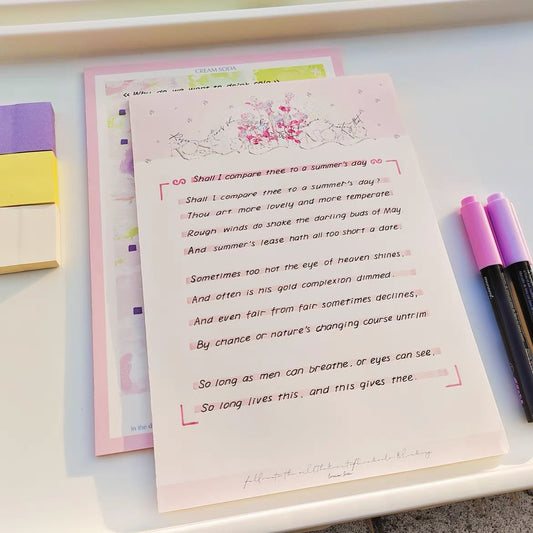 CREAM SODA
Shall I compare thee to a summer's day
Shall I compare thee to a summer's day?
Thou art more lovely and more temperate
Rough winds do shake the darling buds of May
And summer's lease hath all too short a date.
Sometimes too hot the eye of heaven shines.
And often is his gold complexion dimmed.
And even fair from fair sometimes declines,
By chance or nature's changing course untrim
So long as men can breathe. or eyes can see.
So long lives this. and this gives thee.
in the d